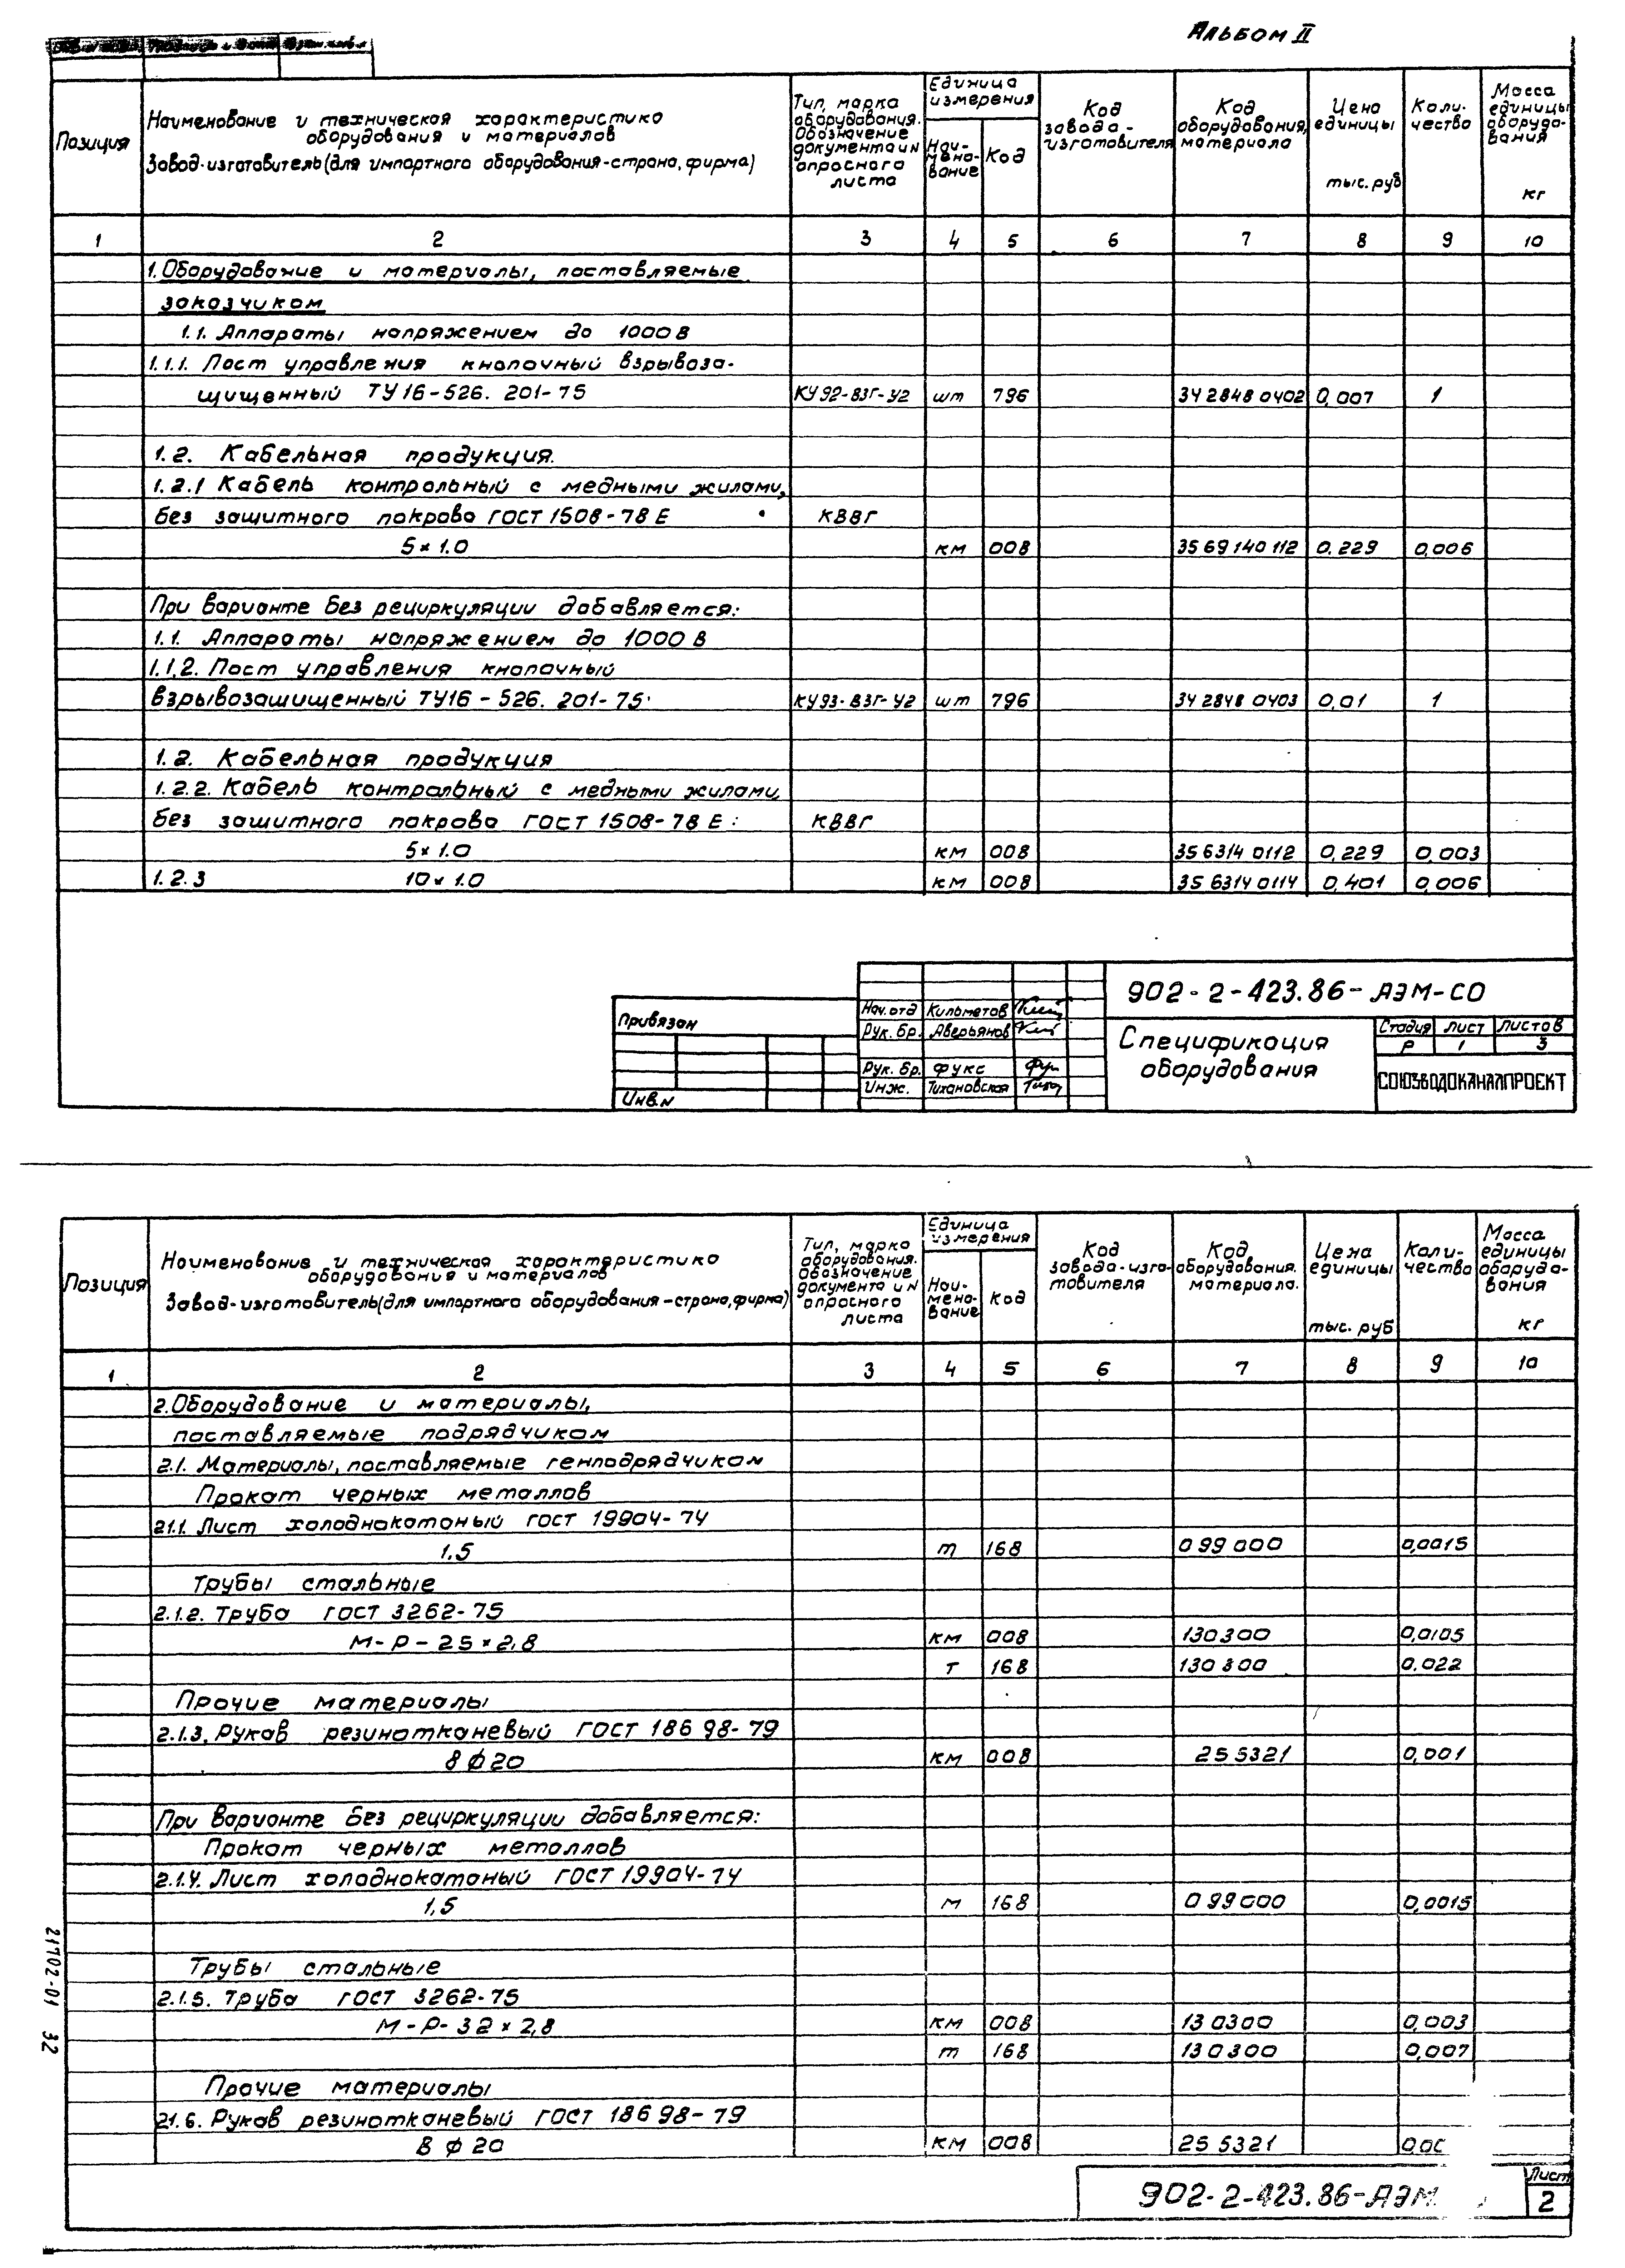 Альбом II
Позиция
Наименование и техническая характеристика
оборудования и материалов
Завод-изготовитель (для импортного оборудования-страна, фирма)
Тип, марка
оборудования.
Обозначение
документа и N
опросного
листа
Единица
измерения
Наи-
мено-
вание
Код
Код
завода-
изготовителя
Код
оборудования,
материала
Цена
единицы
тыс. руб
Коли-
чество
Масса
единицы
оборудо-
вания
кг
1 2 3 4 5 6 7 8 9 10
1. Оборудование и материалы, поставляемые
заказчиком
1.1. Аппараты напряжением до 1000 В
1.1.1. Пост управления кнопочный взрывоза-
щищенный ТУ 16-526. 201-75 КУ 92-ВЗГ-У2 шт 796 34 2848 0402 0,007 1
1.2. Кабельная продукция.
1.2.1 Кабель контрольный с медными жилами,
без защитного покрова ГОСТ 1508-78 Е КВВГ
5×1.0 км 008 35 69 140 112 0.229 0,006
При варианте без рециркуляции добавляется:
1.1. Аппараты напряжением до 1000 В
1.1.2. Пост управления кнопочный
взрывозащищенный ТУ16-526. 201-75 КУ93-ВЗГ-У2 шт 796 34 2848 0403 0,01 1
1.2. Кабельная продукция
1.2.2. Кабель контрольный с медными жилами,
без защитного покрова ГОСТ 1508-78 Е: КВВГ
5×1.0 км 008 35 6314 0112 0,229 0,003
1.2.3 10×1.0 км 008 35 6314 0114 0,401 0,006
Привязан
Инв.N
Нач. отд Кильметов
Рук. бр. Аверьянов
Рук. бр. Фукс
Инж. Тихановская
902-2-423.86-АЭМ-СО
Спецификация
оборудования
Стадия Лист Листов
Р 1 3
СОЮЗВОДОКАНАЛПРОЕКТ
Позиция
Наименование и техническая характеристика
оборудования и материалов
Завод-изготовитель (для импортного оборудования-страна, фирма)
Тип, марка
оборудования.
Обозначение
документа и N
опросного
листа
Единица
измерения
Наи-
мено-
вание
Код
Код
завода-изго-
товителя
Код
оборудования.
материала.
Цена
единицы
тыс. руб
Коли-
чество
Масса
единицы
оборудо-
вания
кг
1 2 3 4 5 6 7 8 9 10
2. Оборудование и материалы,
поставляемые подрядчиком
2.1. Материалы, поставляемые генподрядчиком
Прокат черных металлов
2.1.1. Лист холоднокатаный ГОСТ 19904-74
1.5 т 168 0 99 000 0,0015
Трубы стальные
2.1.2. Труба ГОСТ 3262-75
М-Р-25×2,8 км 008 130300 0,0105
т 168 130 300 0.022
Прочие материалы
2.1.3. Рукав резинотканевый ГОСТ 18698-79
8 ф 20 км 008 25 5321 0,001
При варианте без рециркуляции добавляется:
Прокат черных металлов
2.1.4. Лист холоднокатаный ГОСТ 19904-74
1,5 м 168 0 99000 0,0015
Трубы стальные
2.1.5. Труба ГОСТ 3262-75
М-Р-32×2,8 км 008 13 0300 0,003
т 168 130300 0,007
Прочие материалы
2.1.6. Рукав резинотканевый ГОСТ 18698-79
В ф 20 км 008 25 5321
902-2-423.86-АЭМ
Лист
2
21702-01 32